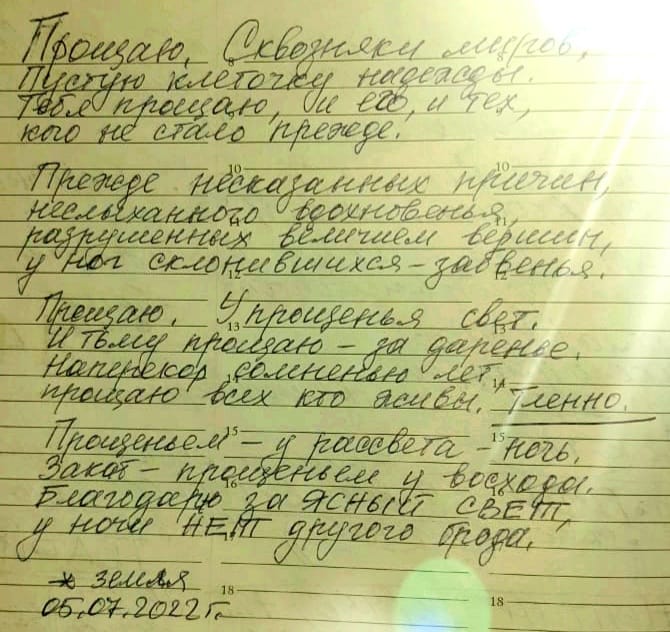 Прощаю. Сквозняки миров,
Пустую клеточку надежды.
Тебя прощаю, и его, и тех,
кого не стало прежде.
Прежде несказанных причин,
неслыханного вдохновенья,
разрушенных величием вершин,
у ног склонившихся – забвенья.
Прощаю. У прощенья свет.
И тьму прощаю – за даренье.
Наперекор сомненью лет,
прощаю всех кто живы. Тленно.
Прощеньем – у рассвета – ночь.
Закат – прощеньем у восхода.
Благодарю за ЯСНЫЙ СВЕТ,
у ночи НЕТ другого брода.
* земля
05.07.2022 г.
8
8
10
10
11
11
12
12
13
13
14
14
15
15
16
16
18
18